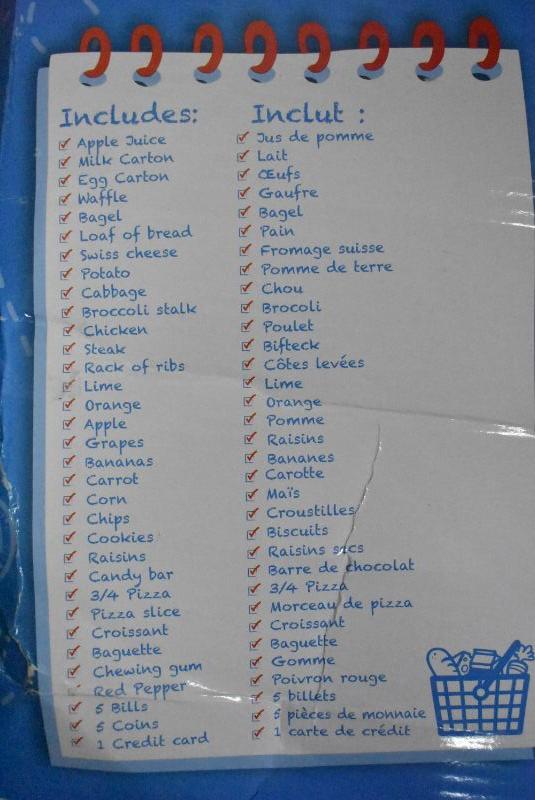 Includes:
Apple Juice
Milk Carton
Egg Carton
Waffle
Bagel
Loaf of bread
Swiss cheese
Potato
Cabbage
Broccoli stalk
Chicken
Steak
Rack of ribs
Lime
Orange
Apple
Grapes
Bananas
Carrot
Corn
Chips
Cookies
Raisins
Candy bar
3/4 Pizza
Pizza slice
Croissant
Baguette
Chewing gum
Red Pepper
5 Bills
5 Coins
1 Credit card
Inclut :
Jus de pomme
Lait
Œufs
Gaufre
Bagel
Pain
Fromage suisse
Pomme de terre
Chou
Brocoli
Poulet
Bifteck
Côtes levées
Lime
Orange
Pomme
Raisins
Bananes
Carotte
Maïs
Croustilles
Biscuits
Raisins secs
Barre de chocolat
3/4 Pizza
Morceau de pizza
Croissant
Baguette
Gomme
Poivron rouge
5 billets
5 pièces de monnaie
1 carte de crédit